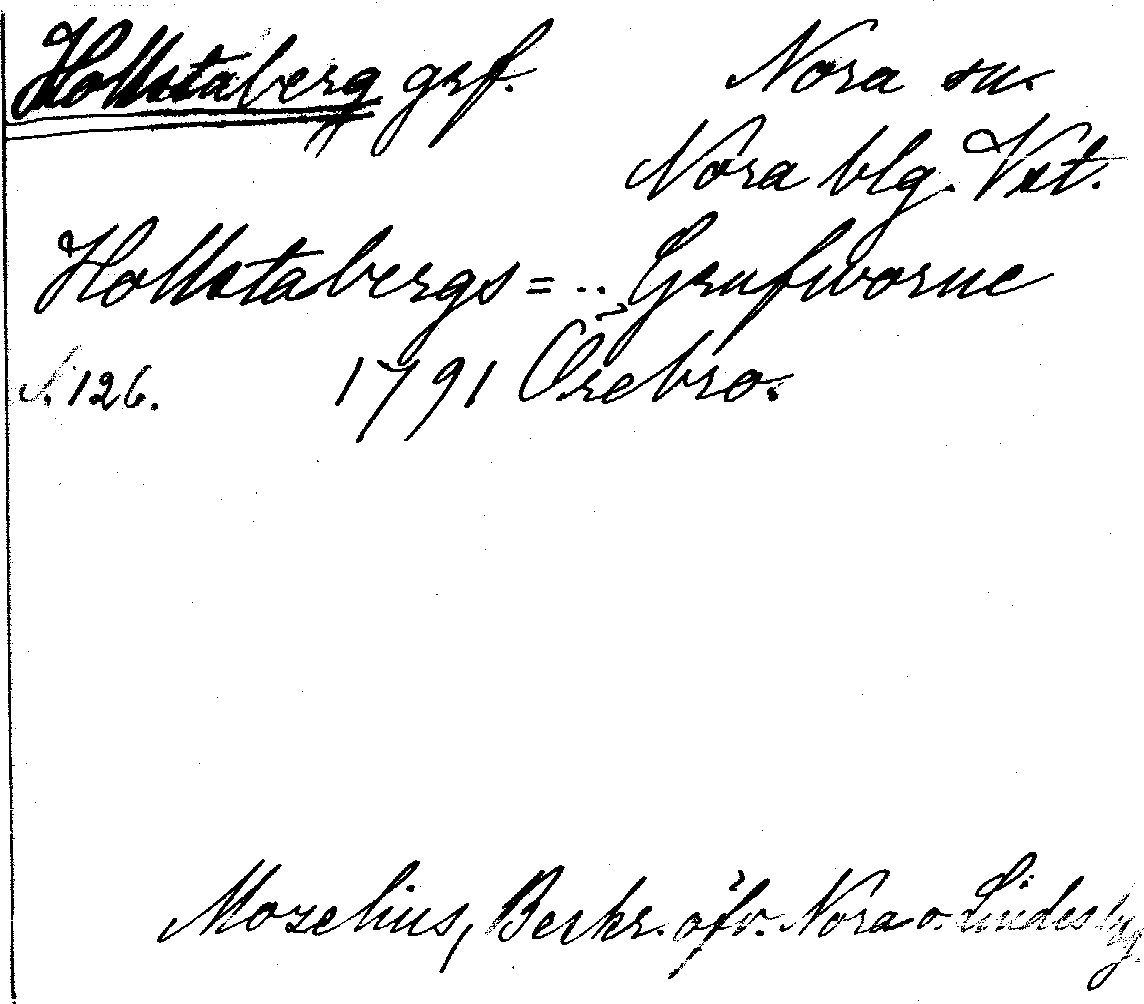 Hollstaberg grf. Nora sn.
Nora blg. Vst.
Hollstabergs = .. Grufworne
S. 126. 1791 Örebro.
Mozelius, Beskr. öfv. Nora o. Lindesbg.